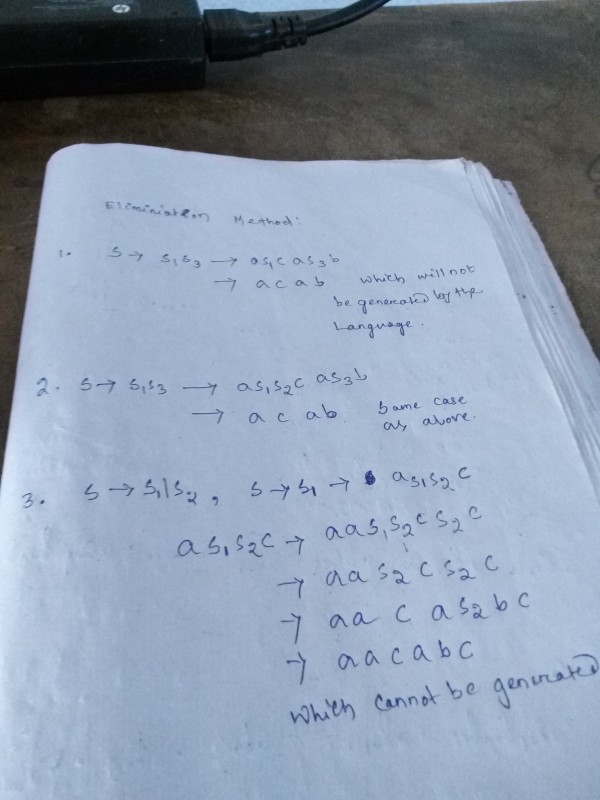 hp
Eliminiation Method:
1. S → S₁S₃ → aS₁c aS₃b
→ a c a b which will not
be generated by the
Language.
2. S → S₁S₃ → aS₁S₂c aS₃b
→ a c ab. Same case
as above.
3. S → S₁|S₂, S → S₁ → aS₁S₂c
aS₁S₂c → aaS₁S₂c S₂c
→ aa S₂ c S₂ c
→ aa c aS₂b c
→ aacabc
which cannot be generated